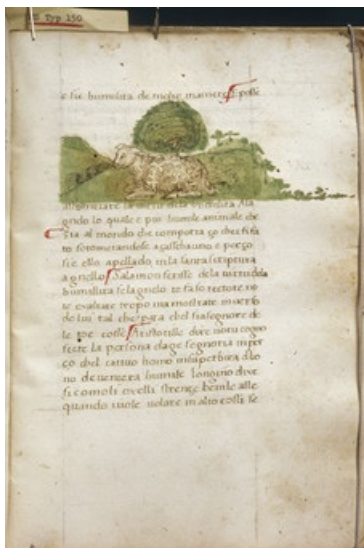 Typ 150
e sie humilita de molte maniere possé
assomiliare la virtu dela humilita ala
gnello lo quale e piu humele animale che
sia al mondo che comporta ço che li fi fa
to sotometandose a çaschauno e perço
sie ello apellado in la santa scriptura
agnello Salamon scrisse de la virtu dela
humilita se la gnello to fa so rectore no
te exaltare tropo ma mostrate inverso
de lui tal che para chel sia segnore de
le toe cosse Aristotille dice voi tu cogno
scere la persona dage segnoria imper
ço chel cativo homo insuperbira e lo bo
no devenera humile Longino dixe
si como li oxelli strençe ben le alle
quando i vole volare in alto cossi se